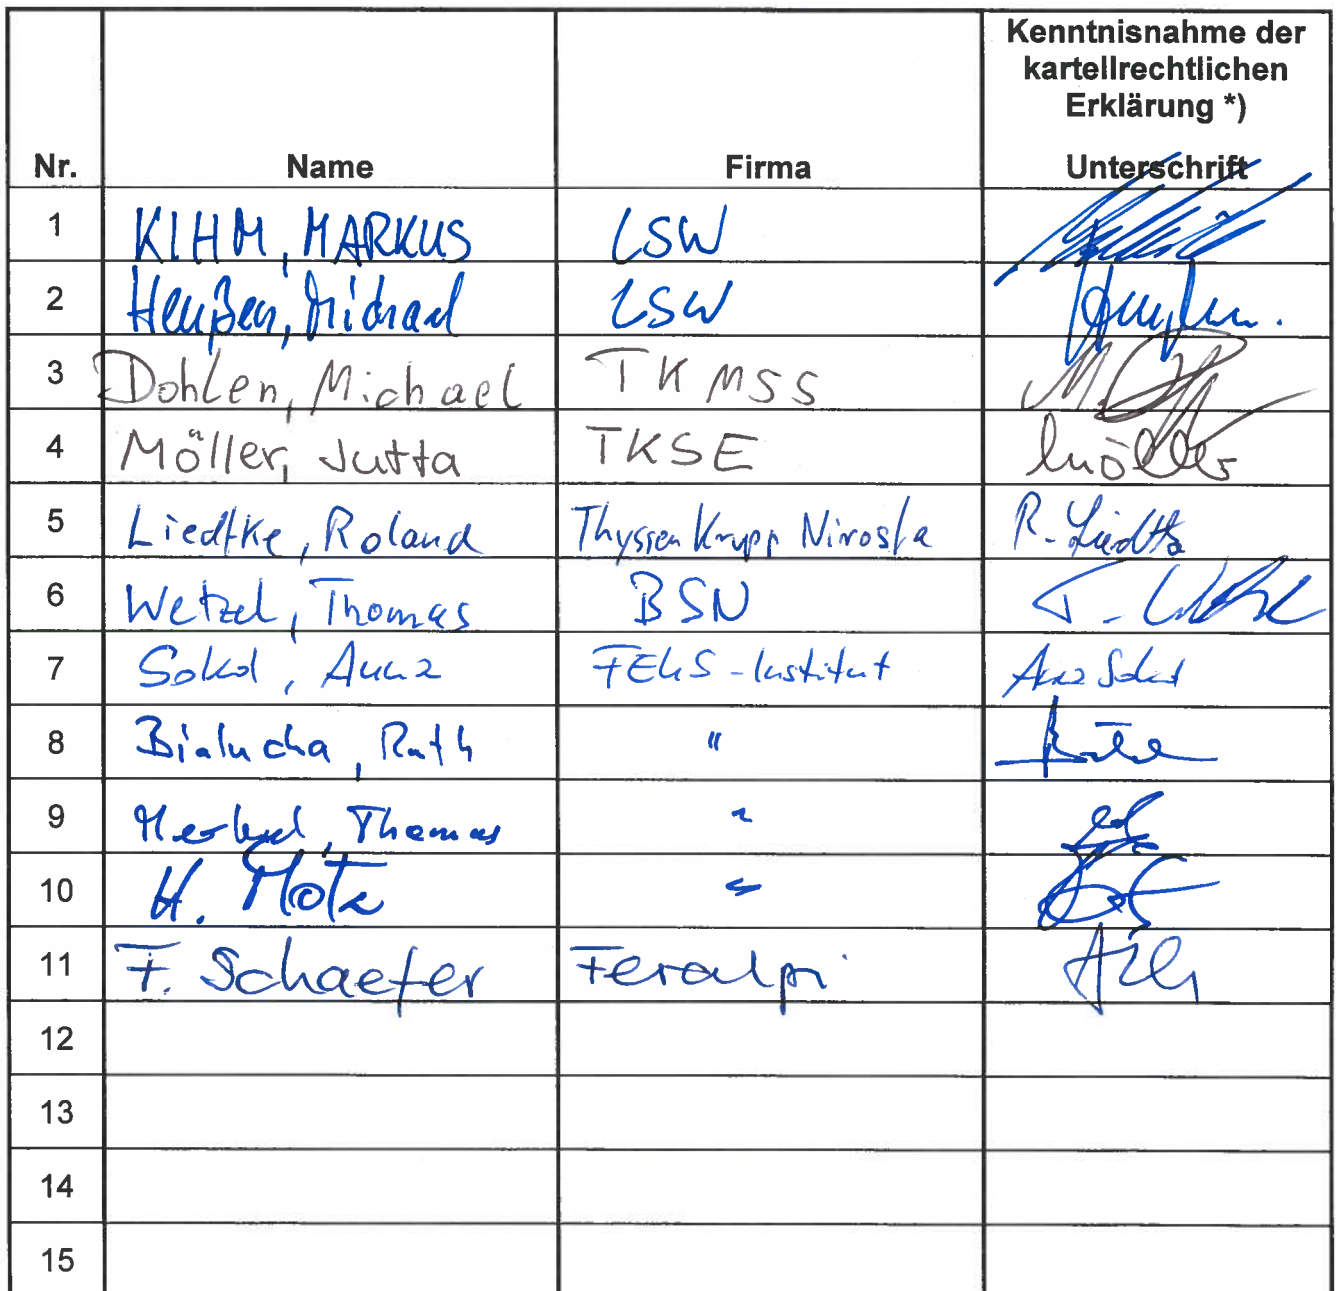 Kenntnisnahme der
kartellrechtlichen
Erklärung *)
Nr. Name Firma Unterschrift
1 KIHM, MARKUS LSW
2 Heußen, Michael LSW
3 Dohlen, Michael TKMSS
4 Möller, Jutta TKSE Möller
5 Liedtke, Roland ThyssenKrupp Nirosta R. Liedtke
6 Wetzel, Thomas BSN
7 Sokol, Anna FEhS-Institut Anna Sokol
8 Bialucha, Ruth "
9 Merkel, Thomas "
10 H. Motz "
11 F. Schaefer Feralpi
12
13
14
15